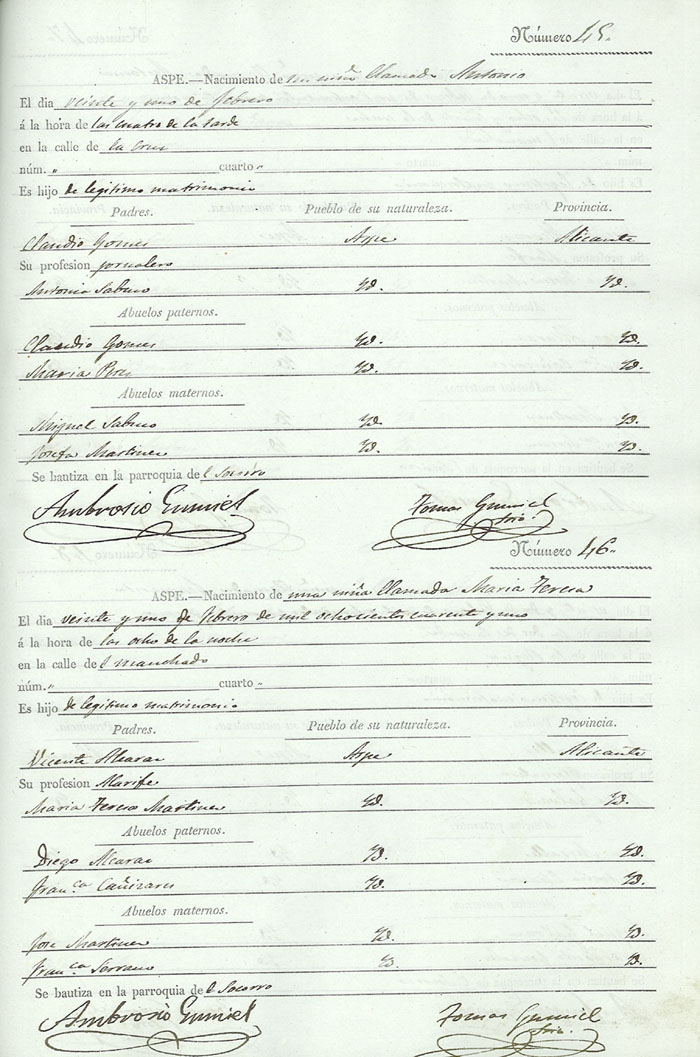 Número 45.
ASPE.—Nacimiento de un niño llamado Antonio
El dia veinte y uno de febrero
á la hora de las cuatro de la tarde
en la calle de la Cruz
núm. " cuarto "
Es hijo de legitimo matrimonio
Padres. Pueblo de su naturaleza. Provincia.
Claudio Gomes Aspe Alicante
Su profesion jornalero
Antonia Sabuco Yd. Yd.
Abuelos paternos.
Claudio Gomes Yd. Yd.
Maria Peres Yd. Yd.
Abuelos maternos.
Miguel Sabuco Yd. Yd.
Josefa Martines Yd. Yd.
Se bautiza en la parroquia de l Socorro
Ambrosio Gumiel Tomas Gumiel
Srio.
Número 46.
ASPE.—Nacimiento de una niña llamada Maria Teresa
El dia veinte y uno de febrero de mil ochosientos cuarenta y uno
á la hora de las ocho de la noche
en la calle de l manchado
núm. " cuarto "
Es hijo de legitimo matrimonio
Padres. Pueblo de su naturaleza. Provincia.
Vicente Alcaras Aspe Alicante
Su profesion Alarife
Maria Teresa Martines Yd. Yd.
Abuelos paternos.
Diego Alcaras Yd. Yd.
Fran.ca Cañizares Yd. Yd.
Abuelos maternos.
Jose Martines Yd. Yd.
Fran.ca Serrano Yd. Yd.
Se bautiza en la parroquia de l Socorro
Ambrosio Gumiel Tomas Gumiel
Srio.